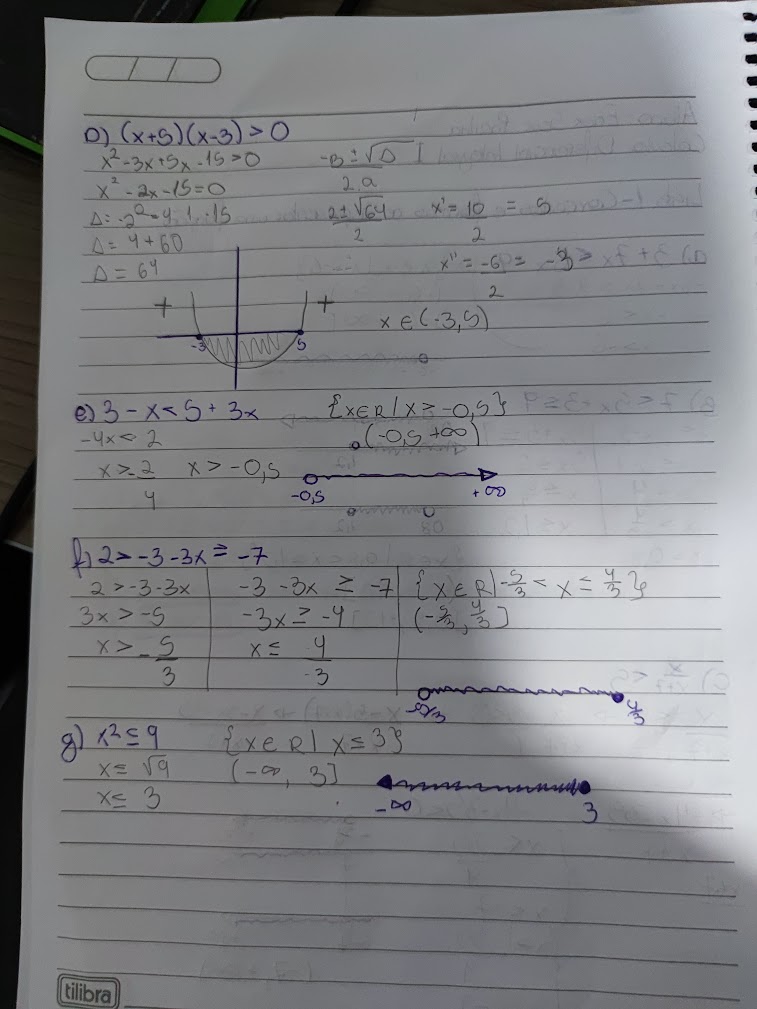 D) (x+5)(x-3) > 0
x² -3x+5x -15 >0
x² - 2x -15 = 0
Δ = -2² -4.1.-15
Δ = 4 + 60
Δ = 64
-B ± √Δ
2.a
2 ± √64
2
x' = 10 = 5
2
x'' = -6 = -3
2
+ +
-3 5
x ∈ (-3,5)
e) 3 - x < 5 + 3x
-4x < 2
x > -2
4
x > -0,5
{x∈R | x > -0,5}
(-0,5 +∞)
-0,5 +∞
f) 2 > -3 -3x ≥ -7
2 > -3 -3x
3x > -5
x > -5
3
-3 -3x ≥ -7
-3x ≥ -4
x ≤ 4
-3
{x∈R | -5/3 < x ≤ 4/3}
(-5/3, 4/3]
-5/3 4/3
g) x² ≤ 9
x ≤ √9
x ≤ 3
{x∈R | x ≤ 3}
(-∞, 3]
-∞ 3
tilibra